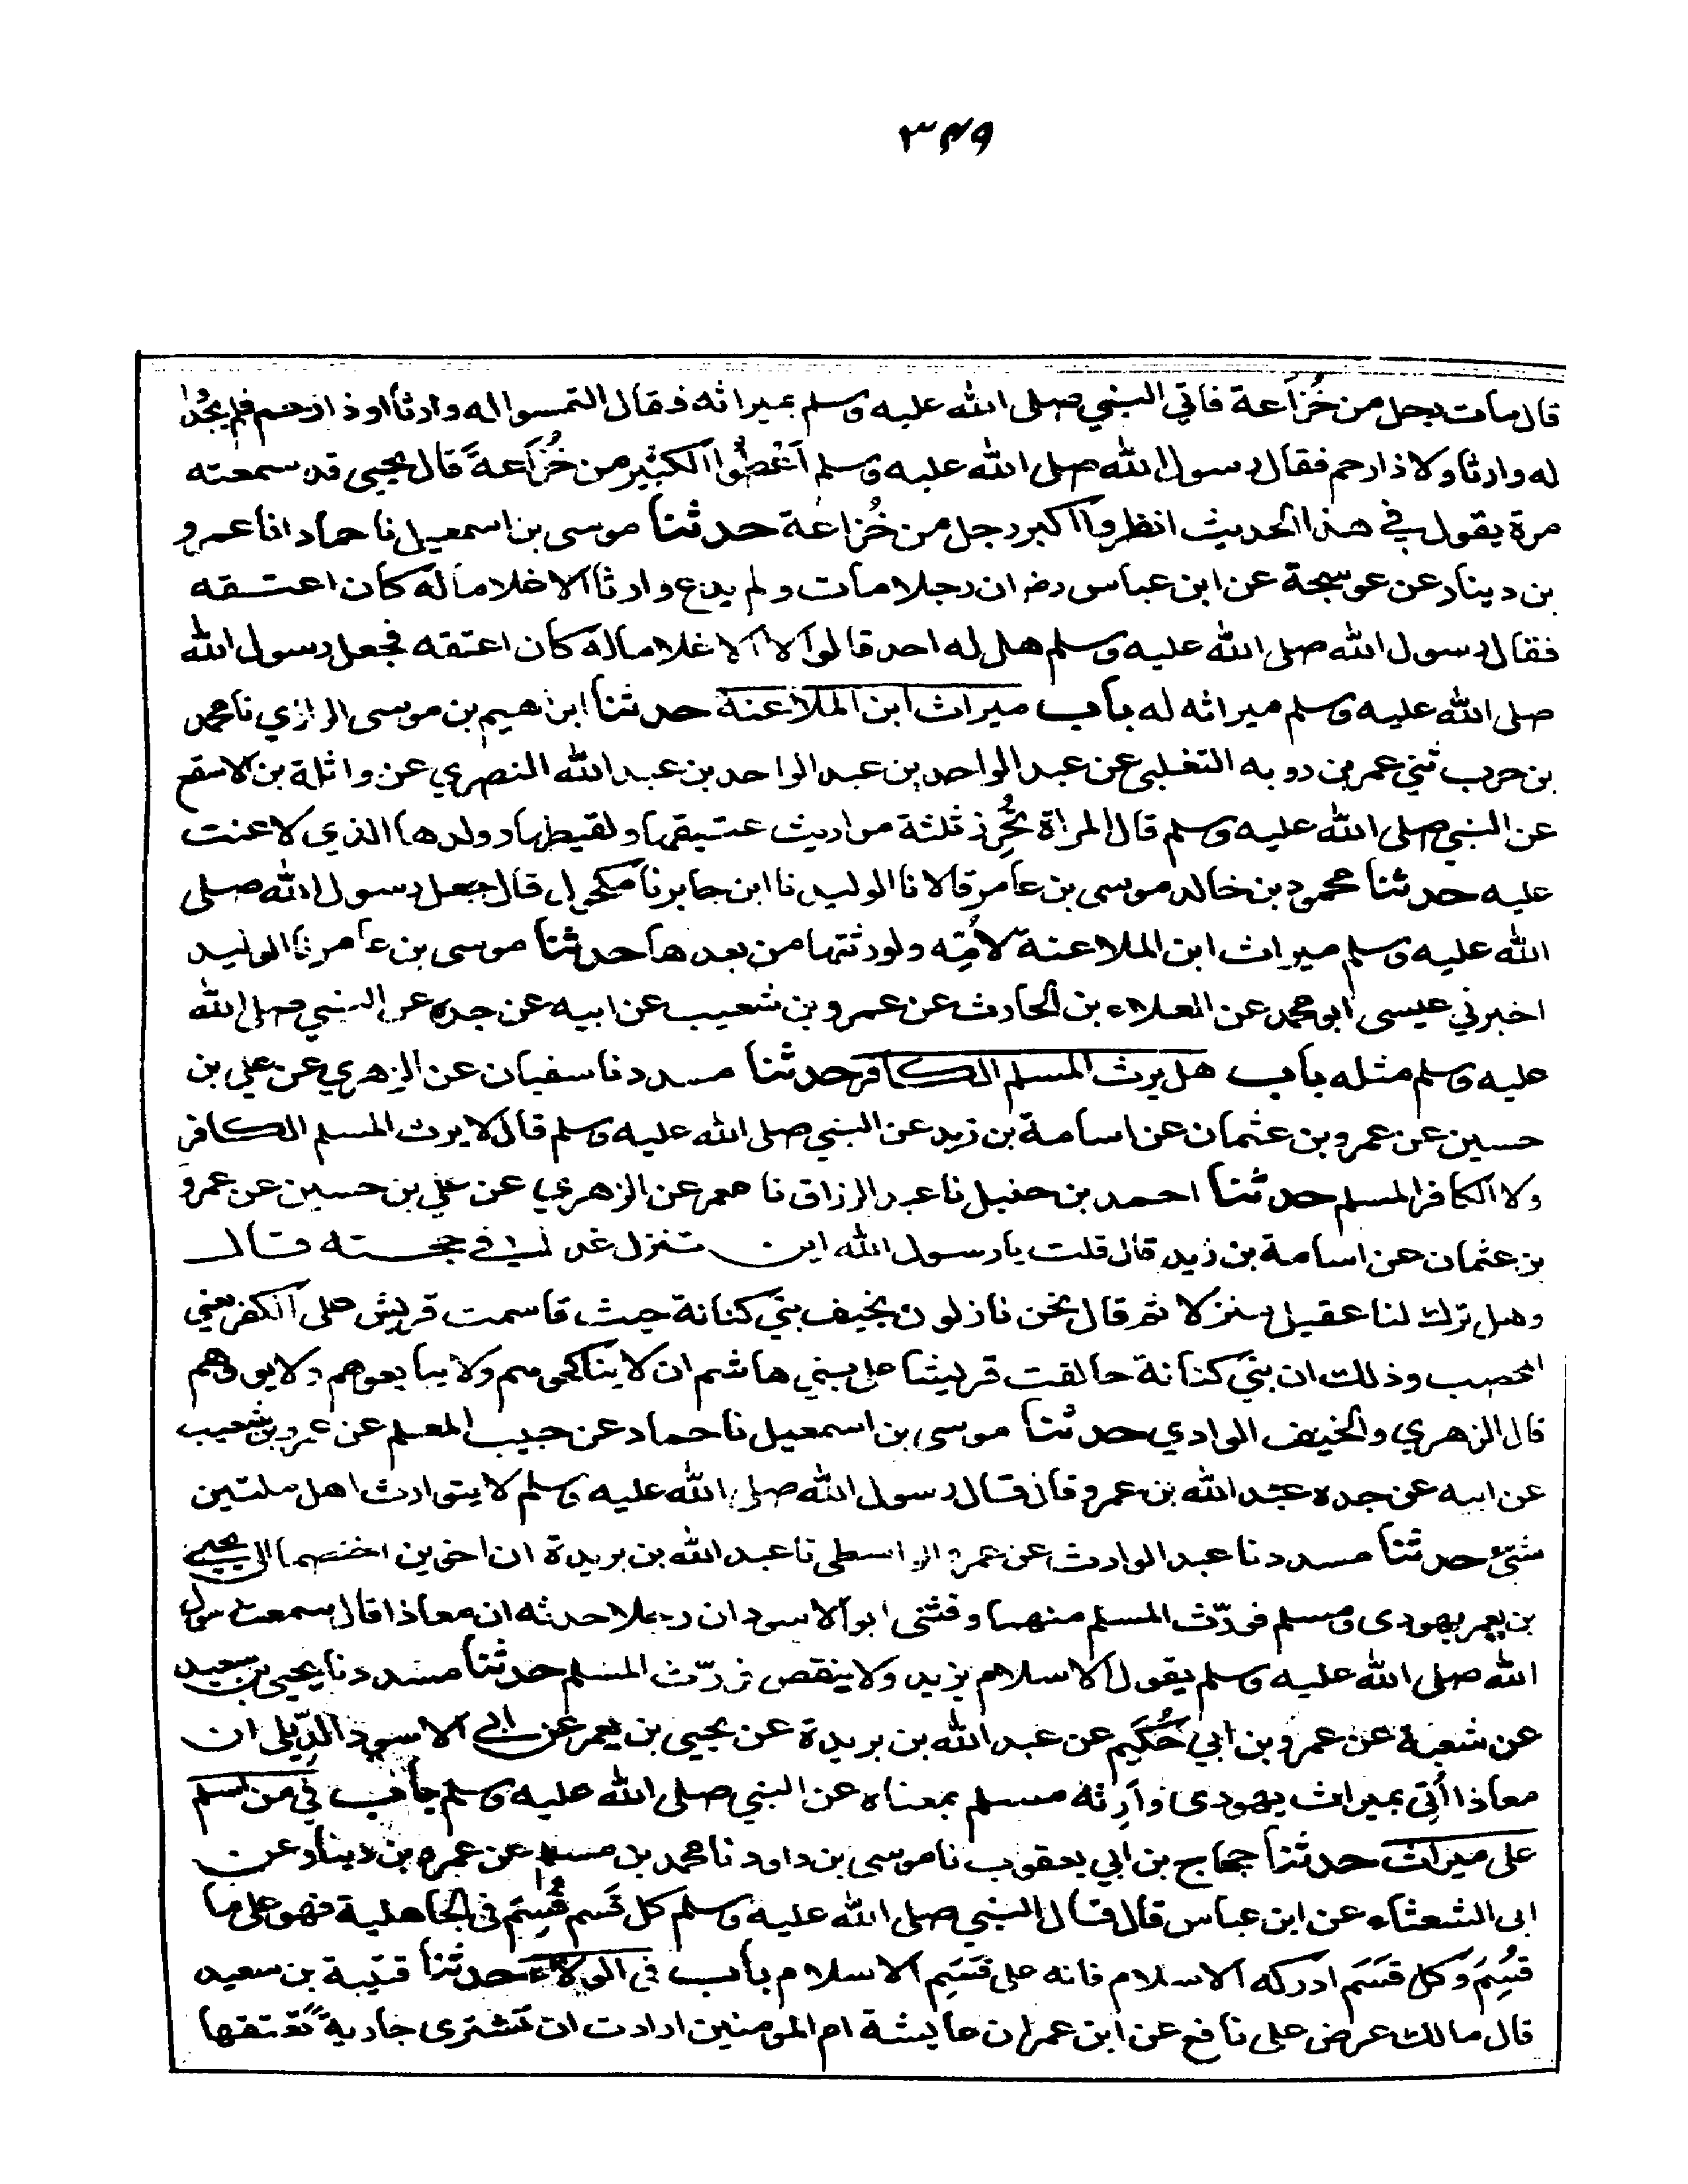 ۳۴۹
قال مات رجل من خُزَاعة فاتي النبي صلى الله عليه وسلم بميراثه فقال التمسوا له وارثا او ذا رحم فلم يجدوا
له وارثا ولا ذا رحم فقال رسول الله صلى الله عليه وسلم اَعْطُوا الكثير من خُزَاعةَ قال يحيى قد سمعته
مرة يقول في هذا الحديث انظروا اكبر رجل من خُزاعة حدثنا موسى بن اسمعيل نا حماد انا عمرو
بن دينار عن عوسجة عن ابن عباس رض ان رجلا مات ولم يدع وارثا الا غلاما له كان اعتقه
فقال رسول الله صلى الله عليه وسلم هل له احد قالوا لا الا غلاما له كان اعتقه فجعل رسول الله
صلى الله عليه وسلم ميراثه له باب ميراث ابن الملاعنة حدثنا ابراهيم بن موسى الرازي نا محمد
بن حرب ثني عمر بن روبه التغلبي عن عبد الواحد بن عبد الواحد بن عبد الله النصري عن واثلة بن الاسقع
عن النبي صلى الله عليه وسلم قال المراة تُحْرِز ثلثة مواريث عتيقها ولقيطها وولدها الذي لاعنت
عليه حدثنا محمود بن خالد موسى بن عامر قالا نا الوليد نا ابن جابر نا مكحول قال جعل رسول الله صلى
الله عليه وسلم ميراث ابن الملاعنة لاُمِّه ولورثتها من بعدها حدثنا موسى بن عامر نا الوليد
اخبرني عيسى ابو محمد عن العلاء بن الحارث عن عمرو بن شعيب عن ابيه عن جده عن النبي صلى الله
عليه وسلم مثله باب هل يرث المسلم الكافر حدثنا مسدد نا سفيان عن الزهري عن علي بن
حسين عن عمرو بن عثمان عن اسامة بن زيد عن النبي صلى الله عليه وسلم قال لا يرث المسلم الكافر
ولا الكافر المسلم حدثنا احمد بن حنبل نا عبد الرزاق نا معمر عن الزهري عن علي بن حسين عن عمرو
بن عثمان عن اسامة بن زيد قال قلت يا رسول الله اين تنزل غدا في حجته قال
وهل ترك لنا عقيل منزلا ثم قال نحن نازلون بخيف بني كنانة حيث قاسمت قريش على الكفر يعني
المحصب وذلك ان بني كنانة حالفت قريشا على بني هاشم ان لا يناكحوهم ولا يبايعوهم ولا يووهم
قال الزهري والخيف الوادي حدثنا موسى بن اسمعيل نا حماد عن حبيب المعلم عن عمرو بن شعيب
عن ابيه عن جده عبد الله بن عمرو قال قال رسول الله صلى الله عليه وسلم لا يتوارث اهل ملتين
شتى حدثنا مسدد نا عبد الوارث عن عمرو الواسطى نا عبد الله بن بريدة ان اخوين اختصما الى يحيى
بن يعمر يهودى ومسلم فورّث المسلم منهما وقثنى ابو الاسود ان رجلا حدثه ان معاذا قال سمعت رسول
الله صلى الله عليه وسلم يقول الاسلام يزيد ولا ينقص فورّث المسلم حدثنا مسدد نا يحيى بن سعيد
عن شعبة عن عمرو بن ابي حُكَيم عن عبد الله بن بريدة عن يحيى بن يعمر عن ابي الاسود الدِّيلى ان
معاذا اُتِي بميراث يهودى وارثه مسلم بمعناه عن النبي صلى الله عليه وسلم باب في من اسلم
على ميراث حدثنا حجاج بن ابي يعقوب نا موسى بن داود نا محمد بن مسلم عن عمرو بن دينار عن
ابى الشعثاء عن ابن عباس قال قال النبي صلى الله عليه وسلم كل قَسم قُسِمَ في الجاهلية فهو على ما
قُسِمَ وكل قَسَم ادركه الاسلام فانه على قَسَمِ الاسلام باب في الولاء حدثنا قتيبة بن سعيد
قال مالك عرض على نافع عن ابن عمر ان عايشة ام المومنين ارادت ان تشترى جاريةً تعتقها